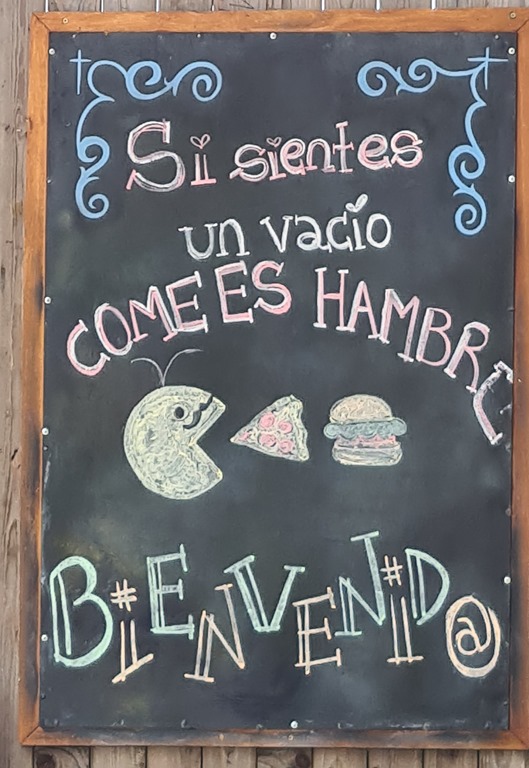 Si sientes
un vacío
COME ES HAMBRE
BiENVENiD@